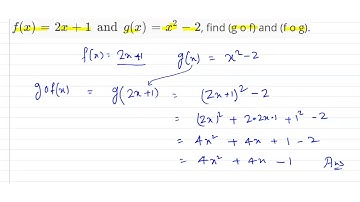 f(x) = 2x + 1 and g(x) = x² − 2, find (g o f) and (f o g).
f(x) = 2x+1 g(x) = x²−2
gof(x) = g(2x+1) = (2x+1)² − 2
= (2x)² + 2·2x·1 + 1² − 2
= 4x² + 4x + 1 − 2
= 4x² + 4x − 1 Ans